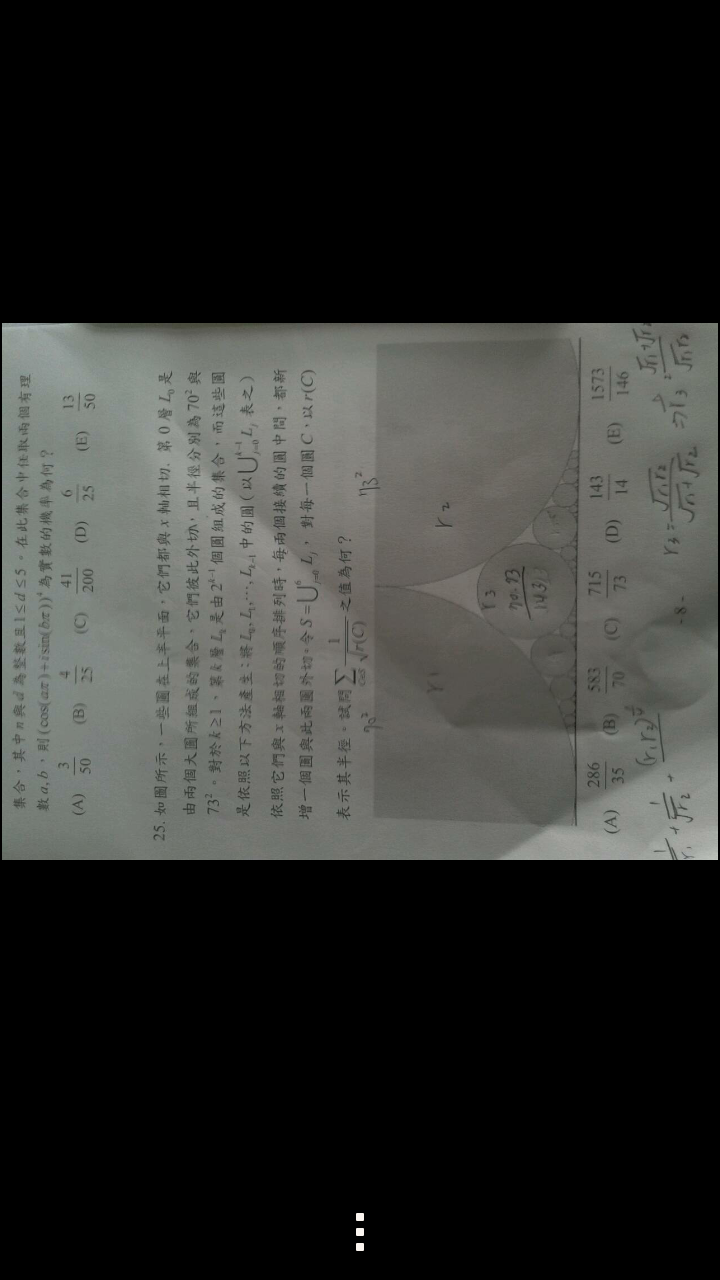 集合，其中 n 與 d 為整數且 1 ≤ d ≤ 5。在此集合中任取兩個有理
數 a, b，則 (cos(aπ)+i sin(bπ))⁴ 為實數的機率為何？
(A) 3/50 (B) 4/25 (C) 41/200 (D) 6/25 (E) 13/50
25. 如圖所示，一些圓在上半平面，它們都與 x 軸相切. 第 0 層 L₀ 是
由兩個大圓所組成的集合、它們彼此外切、且半徑分別為 70² 與
73²。對於 k ≥ 1，第 k 層 Lₖ 是由 2ᵏ⁻¹ 個圓組成的集合，而這些圓
是依照以下方法產生：將 L₀, L₁, ⋯, Lₖ₋₁ 中的圓 (以 ⋃ⱼ₌₀ᵏ⁻¹ Lⱼ 表之)
依照它們與 x 軸相切的順序排列時，每兩個接續的圓中間，都新
增一個圓與此兩圓外切。令 S = ⋃ⱼ₌₀⁶ Lⱼ，對每一個圓 C，以 r(C)
表示其半徑。試問 ∑_{C∈S} 1/√r(C) 之值為何？
70² 73²
r₁ r₂
r₃
70·73
143
(A) 286/35 (B) 583/70 (C) 715/73 (D) 143/14 (E) 1573/146
r₃ = √r₁r₂/√r₁+√r₂
-8-